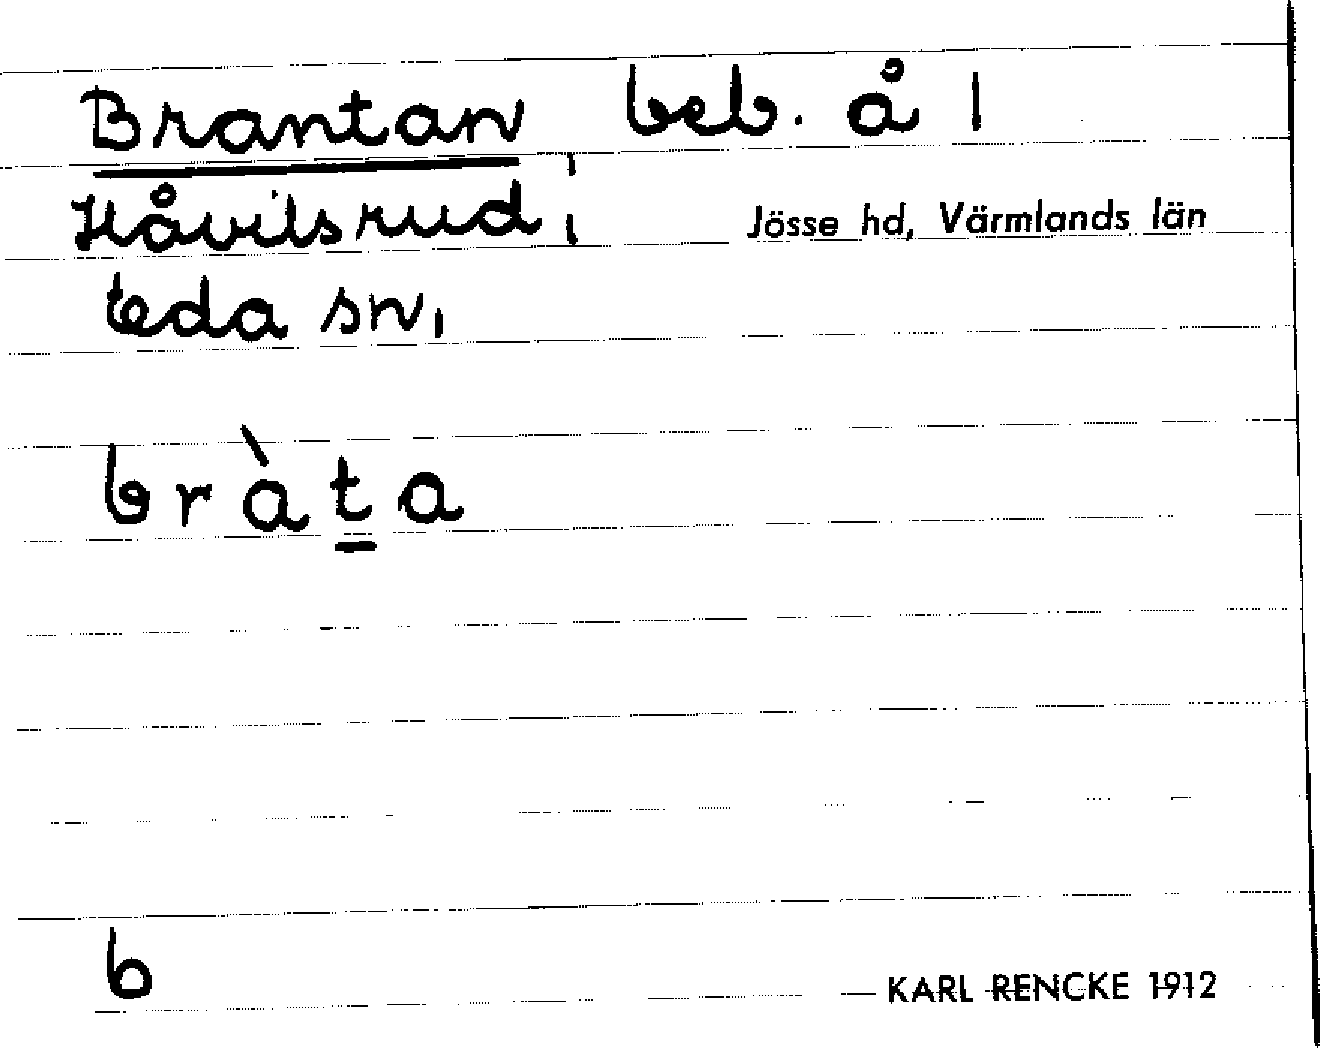 Brantan beb. å 1
Håvilsrud 1:
Jösse hd, Värmlands län
Eda sn,
bràṯa
6
KARL RENCKE 1912